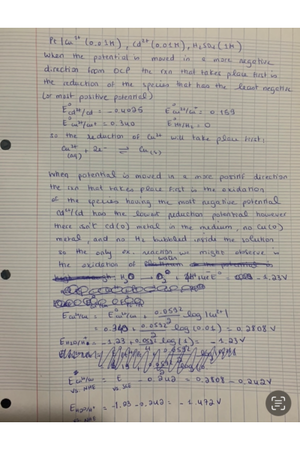 Pt | Cu²⁺ (0.01M), Cd²⁺ (0.01M), H₂SO₄ (1M)
When the potential is moved in a more negative
direction from OCP the rxn that takes place first is
the reduction of the species that has the least negative
(or most positive potential)
E°Cd²⁺/Cd = -0.4025 E°Cu²⁺/Cu⁺ = 0.159
E°Cu²⁺/Cu = 0.340 E°H⁺/H₂ = 0
so the reduction of Cu²⁺ will take place first:
Cu²⁺(aq) + 2e⁻ ⇌ Cu(s)
When potential is moved in a more positive direction
the rxn that takes place first is the oxidation
of the species having the most negative potential
Cd²⁺/Cd has the lowest reduction potential however
there isn't Cd(0) metal in the medium, no Cu(0)
metal, and no H₂ bubbled inside the solution
so the only rxn we might observe is
the oxidation of water
H₂O → O₂ + 4H⁺ + 4e⁻ E° = -1.23V
ECu²⁺/Cu = E°Cu²⁺/Cu + 0.0592/2 log |Cu²⁺|
= 0.340 + 0.0592/2 log (0.01) = 0.2808 V
= -1.23 + log(1) = -1.23V
ECu²⁺/Cu = E - 0.242 = 0.2808 - 0.242V
vs NHE
= -1.23 - 0.242 = -1.472V
vs NHE